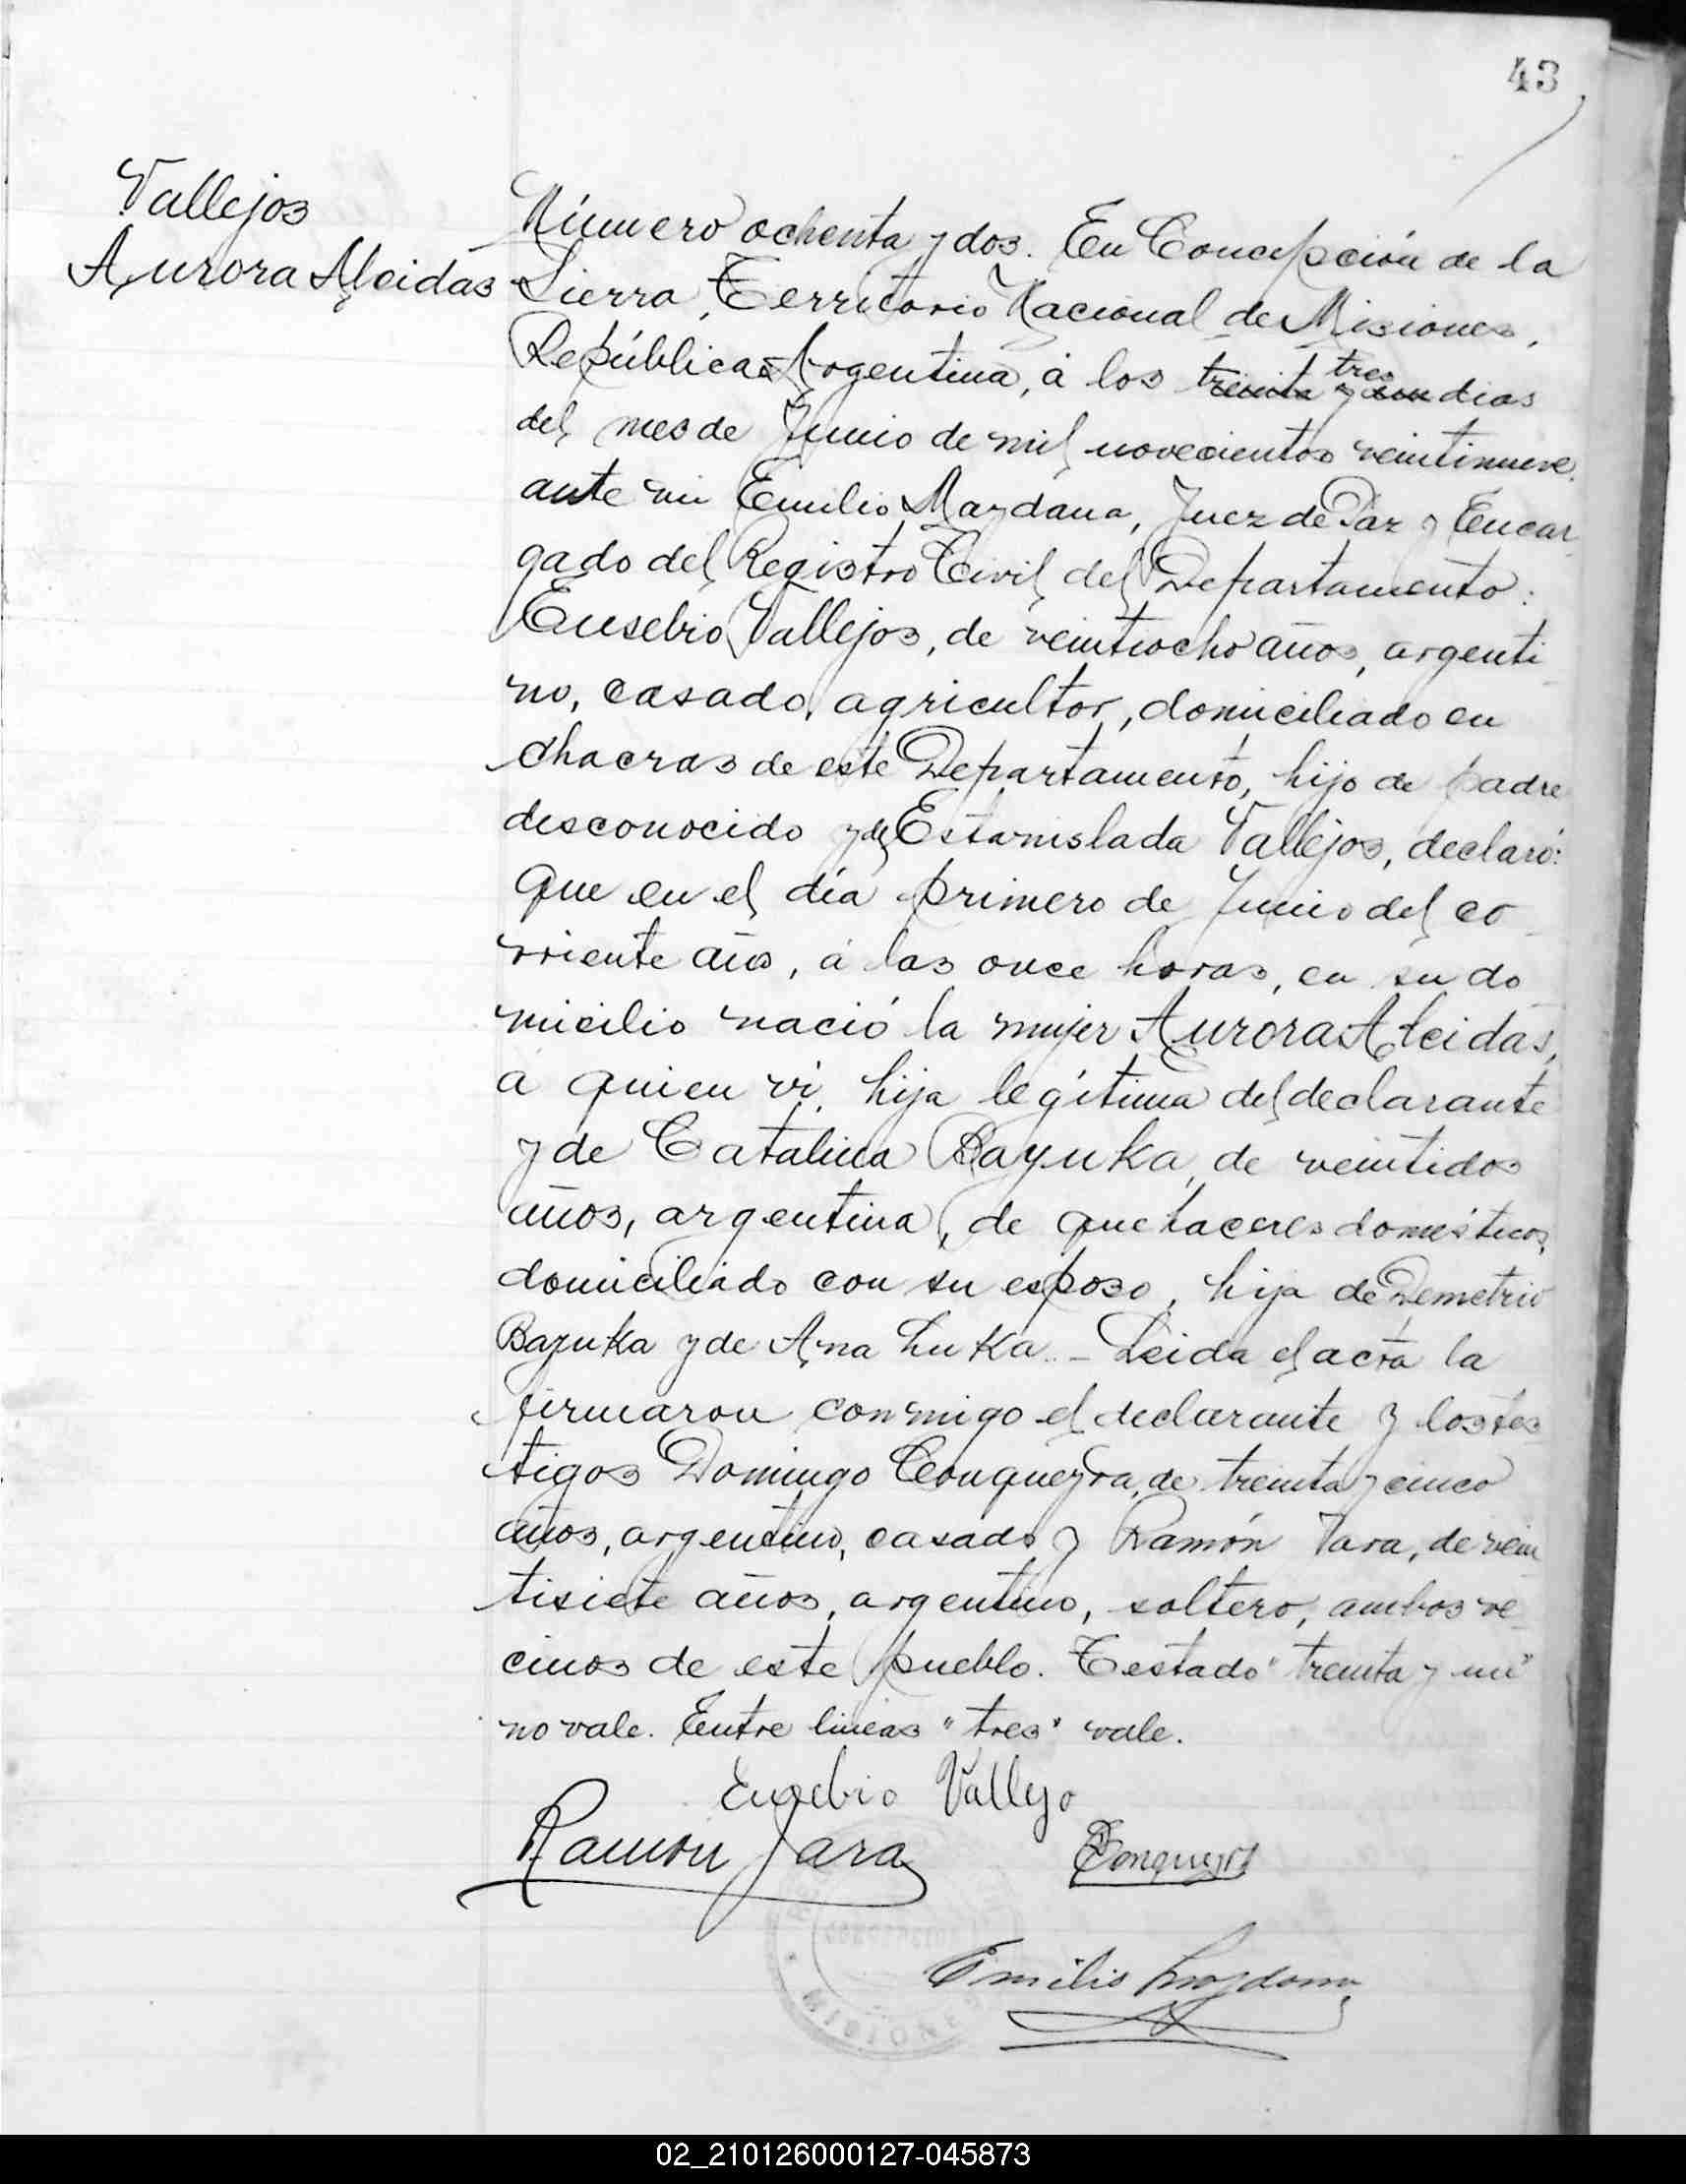 43
Vallejos
Aurora Alcidas
Número ochenta y dos. En Concepción de la
Sierra, Territorio Nacional de Misiones,
República Argentina, á los treinta y un tres dias
del mes de Junio de mil novecientos veintinueve,
ante mi Emilio Maydana, Juez de Paz y Encar
gado del Registro Civil del Departamento:
Eusebio Vallejos, de veintiocho años, argenti
no, casado, agricultor, domiciliado en
chacras de este Departamento, hijo de padre
desconocido y de Estanislada Vallejos, declaró:
Que en el día primero de Junio del co
rriente año, á las once horas, en su do
micilio nació la mujer Aurora Alcidas,
á quien vi, hija legítima del declarante
y de Catalina Bayuka, de veintidos
años, argentina, de quehaceres domésticos,
domiciliado con su esposo, hija de Demetrio
Bazuka y de Ana Luka. - Leida el acta la
firmaron conmigo el declarante y los tes
tigos Domingo Conqueyra, de treinta y cinco
años, argentino, casado y Ramón Jara, de vein
tisiete años, argentino, soltero, ambos ve
cinos de este pueblo. Testado "treinta y un"
no vale. Entre lineas "tres" vale.
Eusebio Vallejo
Ramón Jara
Conqueyra
Emilio Maydana
02_210126000127-045873